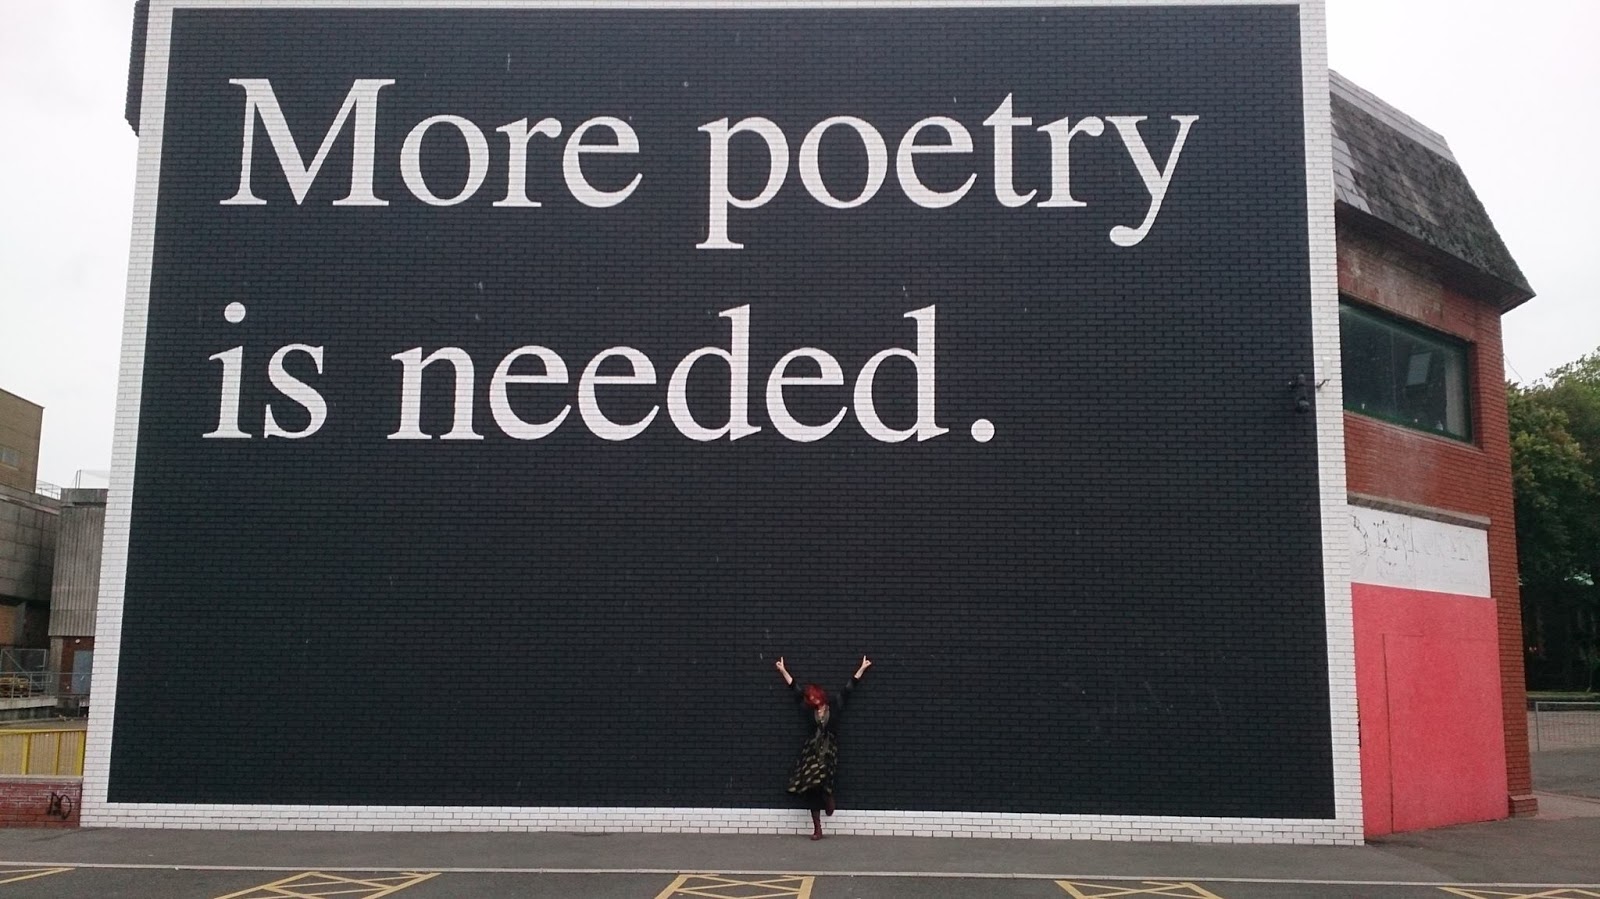 More poetry
is needed.